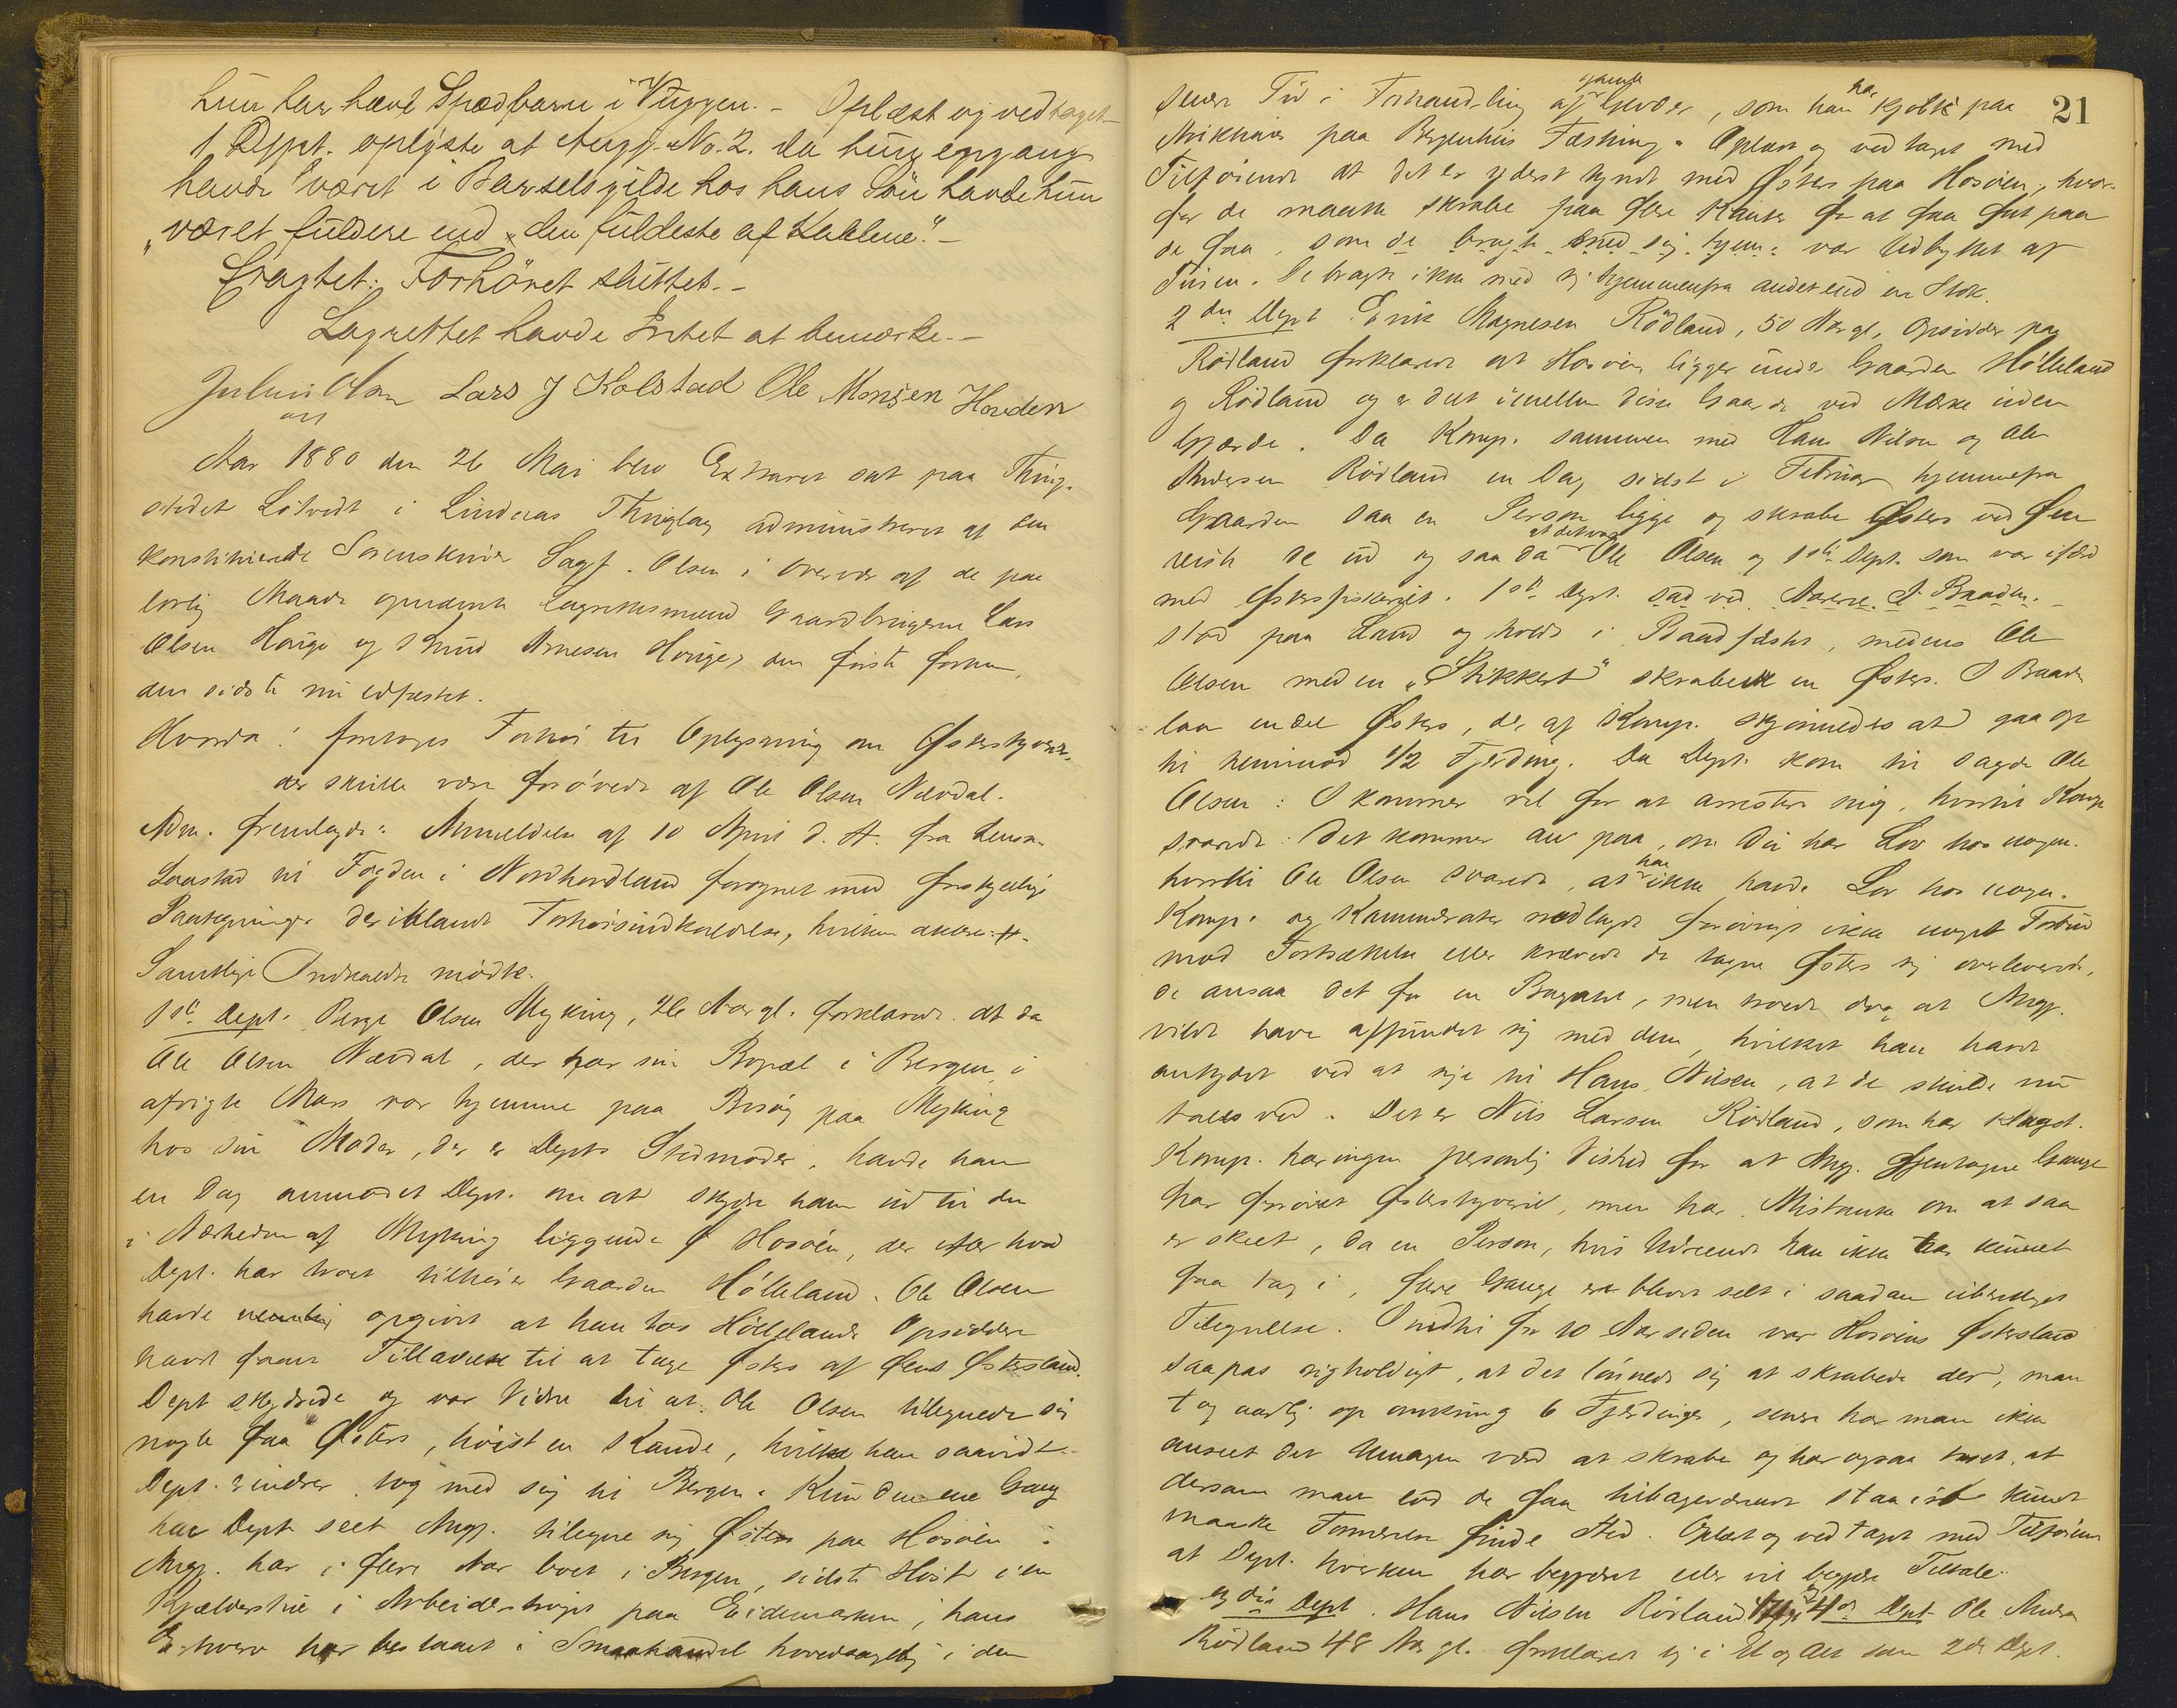 hun har havt Spædbarn i Vuggen. – Oplæst og vedtaget –
1 Dept. oplyste at Angj. No. 2. da hun engang
havde været i Barselsgilde hos hans Sön havde hun
"været fuldere end "den fuldeste af Kallene". –
Eragtet: Forhöret sluttet. –
Lagrettet havde Intet at bemærke. –
Julius Olsen Lars J Kolstad Ole Monsen Hovden
Aar 1880 den 26 Mai blev Extraret sat paa Thing-
stedet Lötvedt i Lindeaas Thinglag administreret af den
konstituerede Sorenskriver Sagf. Olsen i Overvær af de paa
lovlig Maade opnævnte Lagrettesmænd Gaardbrugerne Lars
Olsen Hauge og Knud Arnesen Hauge, den første forhen,
den sidste nu edfæstet.
Hvorda! foretoges Forhör til Oplysning om Østerstyveri,
der skulle være forövede af Ole Olsen Nævdal.
Adm. fremlagde: Anmeldelse af 10 April d. A. fra Lensm.
til Fogden i Nordhordland forsynet med forskjellige
Paategninger deriblandt Forhörsindkaldelse, hvilken
Samtlige Indkaldte mödte.
1ste Dept. Berge Olsen Myking, 26 Aar gl. forklarede at da
Ole Olsen Nævdal, der har sin Bopæl i Bergen, i
afvigte Mars var hjemme paa Besög paa Myking
hos sin Moder, der er Depts Stedmoder, havde han
en Dag anmodet Dept. om at skydse ham ud til den
i Nærheden af Myking liggende Ø Hosöen, der efter hvad
Dept. har troet tilhörer Gaarden Hölleland. Ole Olsen
havde nemlig opgivet at han hos Höllelands Opsiddere
havde faaet Tilladelse til at tage Østers af deres Østersland.
Dept skydsede og var Vidne til at Ole Olsen tilegnede sig
nogle faa Østers, höist en Kande, hvilke han saavidt
Dept. erindrer, tog med sig til Bergen. Kun denne ene Gang
har Dept seet Angj. tilegne sig Østers paa Hosöen.
Angj. har i flere Aar boet i Bergen, sidste Höst i en
Kjælderstue i Arbeiderstrøget paa Eidemarken; hans
Erhverv har bestaaet i Smaahandel hovedsagelig i den
21
senere Tid i Forhandling af gamle Geværer, som han har kjöbt paa
paa Bergenhus Fæstning. Oplæst og vedtaget med
Tilföiende at det er yderst tyndt med Østers paa Hosöen, hvor-
for de maatte skrabe paa flere Kanter for at faa fat paa
de faa, som de bragte med sig hjem: var Udbyttet af
Turen. De bragte ikke med sig hjemmenfra andet end en Stok.
2den Dept Erik Magnesen Rödland, 50 Aar gl, Opsidder paa
Rödland forklarede at Hosöen ligger under Gaarden Hölleland
og Rödland og er delt imellem disse Gaarde ved Mærke uden
Gjærde. Da Komp. sammen med Hans Nilsen og Ole
Andersen Rödland en Dag sidst i Februar hjemmefra
Gaarden saa en Person ligge og skrabe Østers ved Øen
reiste de ud og saa da at det var Ole Olsen og 1ste Dept. som var ifærd
med Østersfiskeriet. 1ste Dept. sad ved Aarene. I Baaden. –
stod paa Land og holdt i Baadfæstet, medens Ole
Olsen med en "Stikkert" skrabede en Østers. I Baaden
laa endel Østers, der af Komp. skjönnedes at gaa op
til henimod 1/2 Fjerding. Da Dept. kom til sagde Ole
Olsen: I kommer vel for at arrestere mig, hvortil Komp
svarede: det kommer an paa, om Du har Lov hos nogen.
hvortil Ole Olsen svarede, at han ikke havde Lov hos nogen.
Komp. og Kammerater nedlagde forövrigt ikke noget Forbud
mod Fortsættelse eller krævede de tagne Østers sig overleverede,
de ansaa det for en Bagatel, men troede dog at Angj.
vilde have affundet sig med dem, hvilket han havde
antydet ved at sige til Hans Nilsen, at de skulde nu
tales ved. Det er Nils Larsen Rödland, som har klaget.
Komp. har ingen personlig Vished for at Angj. gjentagne Gange
har forövet Østerstyveri, men har Mistanke om at saa
er skeet, da en Person, hvis Udseende han ikke har kunnet
faa tag i, flere Gange er blevet seet i saadan uberettiget
Tilegnelse. Indtil for 10 Aar siden var Hosöens Østersland
saapas righoldigt, at det lönnede sig at skrabe der, man
tog aarlig op omkring 6 Fjerdinger, senere har man ikke
anseet det Umagen værd at skrabe og har ogsaa troet, at
dersom man lod de faa tilbageværende staa i ro kunde
maaske Formerelse finde Sted. Oplæst og vedtaget med Tilföiende
at Dept. hverken har begjæret eller vil begjære Tiltale.
3die Dept. Hans Nilsen Rödland og 4de Dept. Ole Andersen
Rödland 48 Aar gl. forklarede sig i Et og Alt som 2de Dept.